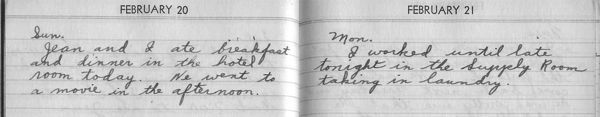 FEBRUARY 20
Sun.
Jean and I ate breakfast
and dinner in the hotel
room today. We went to
a movie in the afternoon.
FEBRUARY 21
Mon.
I worked until late
tonight in the Supply Room
taking in laundry.